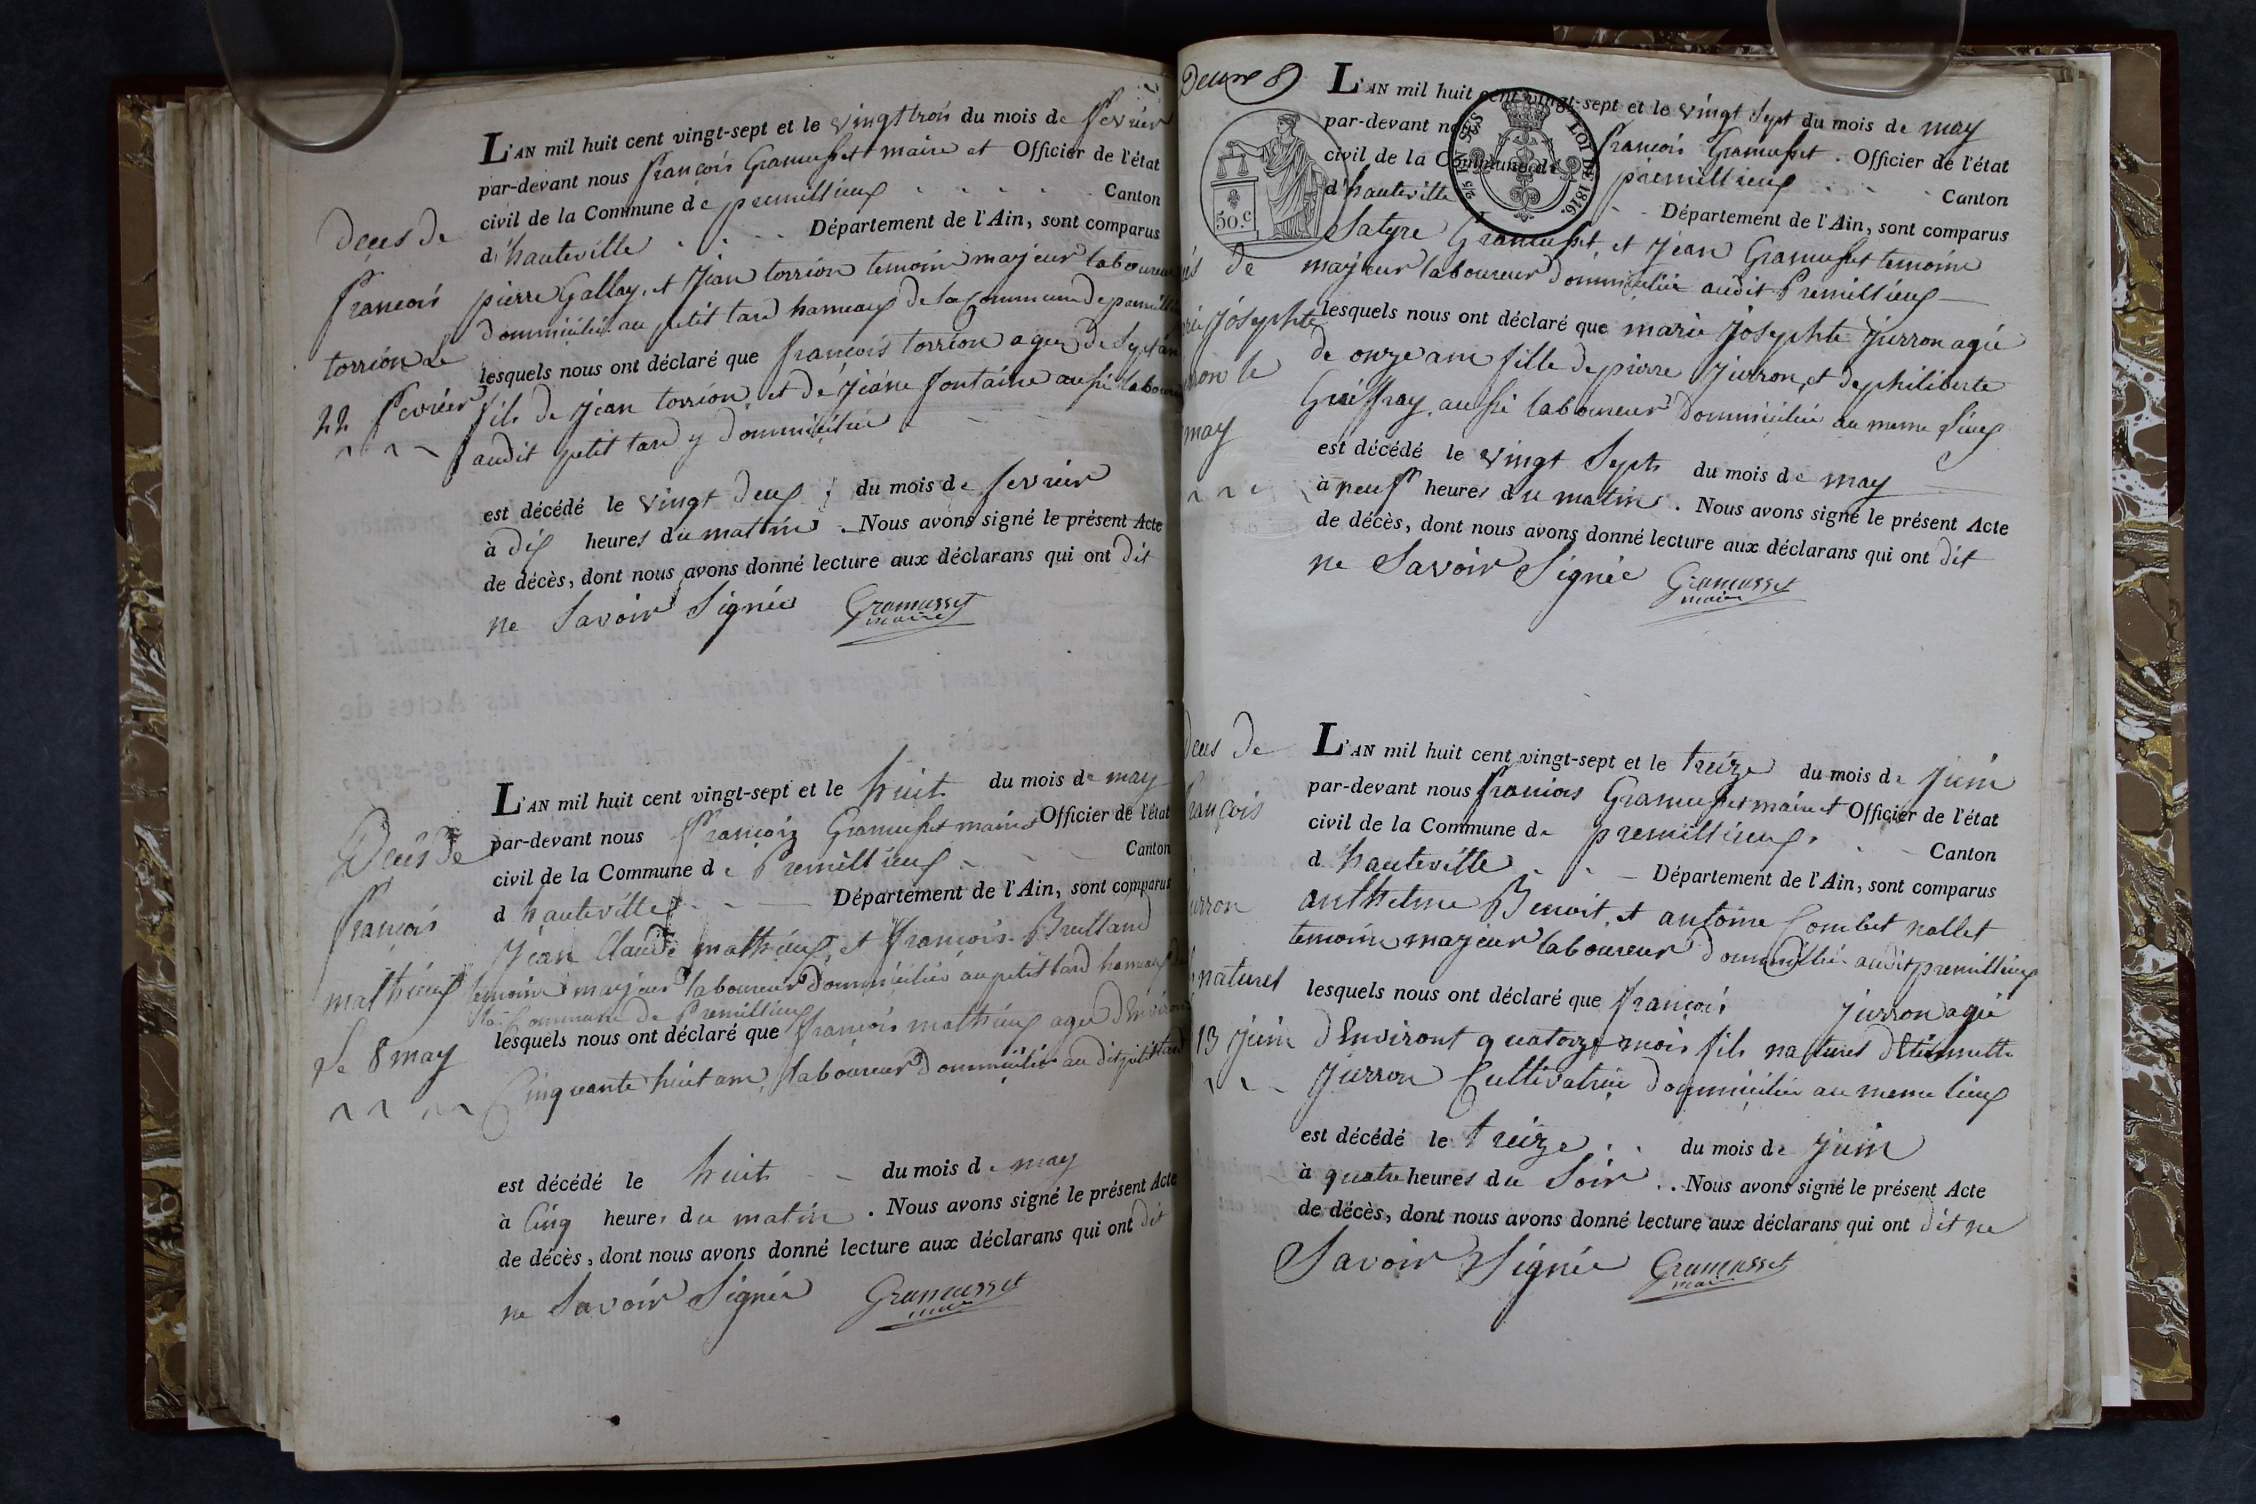 L'AN mil huit cent vingt-sept et le vingt trois du mois de fevrier
par-devant nous françois Gramusset maire et Officier de l'état
civil de la Commune de premillieux Canton
d'hauteville Département de l'Ain, sont comparus
pierre Gallay, et jean torrion temoin majeur laboureur
dommicilié au petit tard hameaux de la Commune de
lesquels nous ont déclaré que françois torrion agez de Sept an
fils de jean torrion, et de jeáne fontaine aussi
audit petit tard y dommicilié
est décédé le vingt deux du mois de fevrier
à dix heures du mattin. Nous avons signé le présent Acte
de décès, dont nous avons donné lecture aux déclarans qui ont dit
ne Savoir Signée Gramusset
maire
Deces de
françois
torrion Le
22 fevrier
L'AN mil huit cent vingt-sept et le huit du mois de may
par-devant nous françois Gramusset maire et Officier de l'état
civil de la Commune de Premillieux Canton
d hauteville Département de l'Ain, sont comparus
jean Claude mathieux, et françois
temoin majeur laboureur dommicilié au petit tard hameaux
Commune de Premillieux
lesquels nous ont déclaré que françois mathieux agee d'Environt
Cinquante huit ans, laboureur dommicilié au dit petit tard
est décédé le huit du mois de may
à Cinq heures du matin. Nous avons signé le présent Acte
de décès, dont nous avons donné lecture aux déclarans qui ont dit
ne Savoir Signée Gramusset
maire
Deces de
françois
mathieux
Le 8 may
50. c
LOI DE 1816.
L'AN mil huit cent vingt-sept et le vingt Sept du mois de may
par-devant nous françois Gramusset. Officier de l'état
civil de la Commune de premillieux Canton
d'hauteville Département de l'Ain, sont comparus
Satyre Gramusset, et jean Gramusset temoins
majeur laboureur dommicilié audit Premillieux
lesquels nous ont déclaré que marie josephte jurron agié
de onze ans fille de pierre jurron, et de philiberte
aussi laboureur dommicilié au meme lieux
est décédé le vingt Sept du mois de may
à neuf heures du matin. Nous avons signé le présent Acte
de décès, dont nous avons donné lecture aux déclarans qui ont dit
ne Savoir Signée Gramusset
maire
de
josephte
le
may
L'AN mil huit cent vingt-sept et le treize du mois de juin
par-devant nous francois Gramusset maire et Officier de l'état
civil de la Commune de premillieux. Canton
d hauteville Département de l'Ain, sont comparus
anthelme Benoit, et antoine Combet nallet
temoin majeur laboureur dommicilié audit premillieux
lesquels nous ont déclaré que françois jurron agié
d'Environt quatorze mois fils naturel d'Etiennette
jurron Cultivatrice dommicilié au meme lieux
est décédé le treize du mois de juin
à quatre heures du Soir. Nous avons signé le présent Acte
de décès, dont nous avons donné lecture aux déclarans qui ont dit ne
Savoir Signée Gramusset
maire
Deces de
françois
jurron
naturel
13 juin